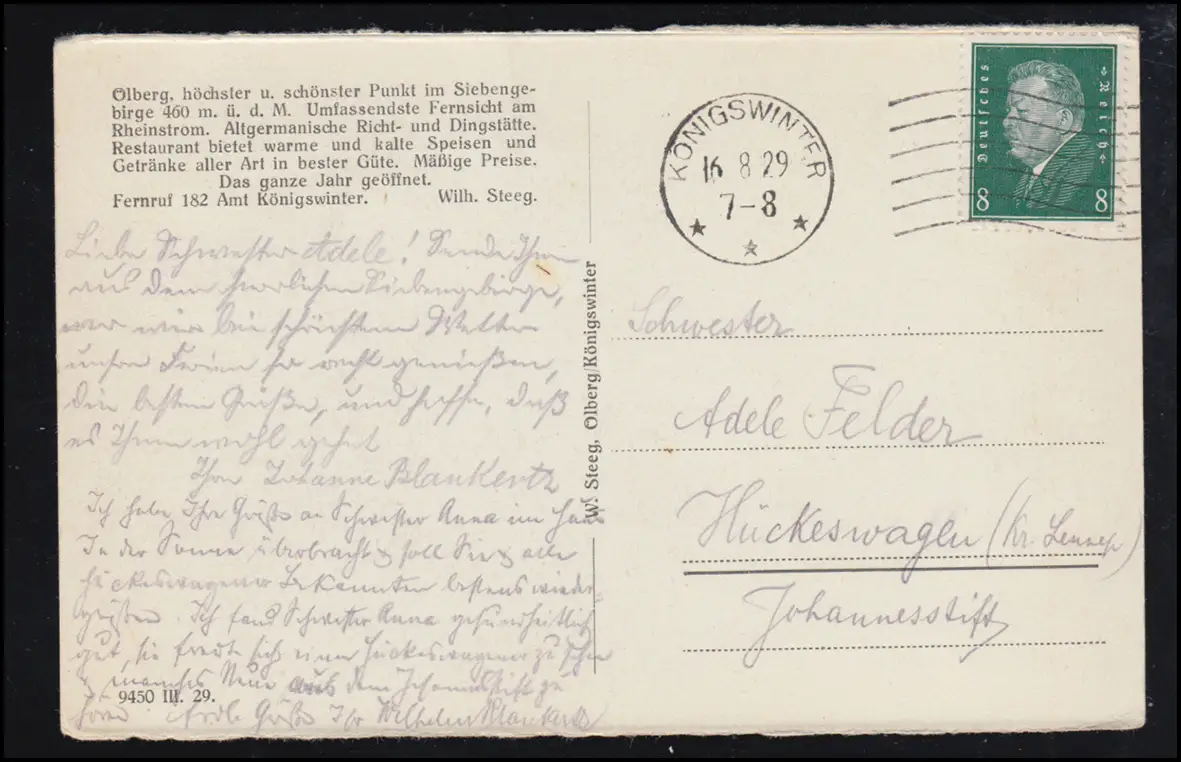 Ölberg, höchster u. schönster Punkt im Siebenge-
birge 460 m. ü. d. M. Umfassendste Fernsicht am
Rheinstrom. Altgermanische Richt- und Dingstätte.
Restaurant bietet warme und kalte Speisen und
Getränke aller Art in bester Güte. Mäßige Preise.
Das ganze Jahr geöffnet.
Fernruf 182 Amt Königswinter. Wilh. Steeg.
Liebe Schwester Adele! Sende Ihnen
aus dem herrlichen Siebengebirge,
wo wir bei schönstem Wetter
unsre Ferien so recht genießen,
die besten Grüße, und hoffe, daß
es Ihnen wohl geht
Ihre Johanne Blankertz
Ich habe Ihre Grüße an Schwester Anna im Haus
In der Sonne überbracht & soll Sie & alle
Hückeswagener Bekannten bestens wieder
grüßen. Ich fand Schwester Anna gesundheitlich
gut, sie freute sich einen Hückeswagener zu sehen
& manches Neue aus dem Johannesstift zu
hören. Grüße Ihr Wilhelm Blankertz
9450 III. 29.
W. Steeg, Ölberg/Königswinter
KÖNIGSWINTER
16 8 29
7-8
Deutsches Reich
8 8
Schwester
Adele Felder
Hückeswagen (Kr. Lennep)
Johannesstift